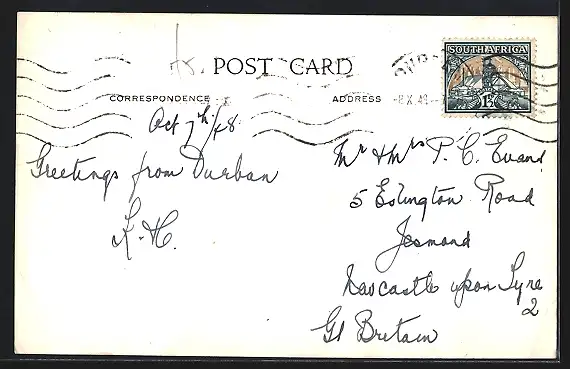 POST CARD
CORRESPONDENCE
ADDRESS
SOUTH AFRICA
1½
Oct 7th/48
Greetings from Durban
Mr & Mrs P. C. Evans
5 Eslington Road
Jesmond
Newcastle upon Tyne
2
Gt Britain